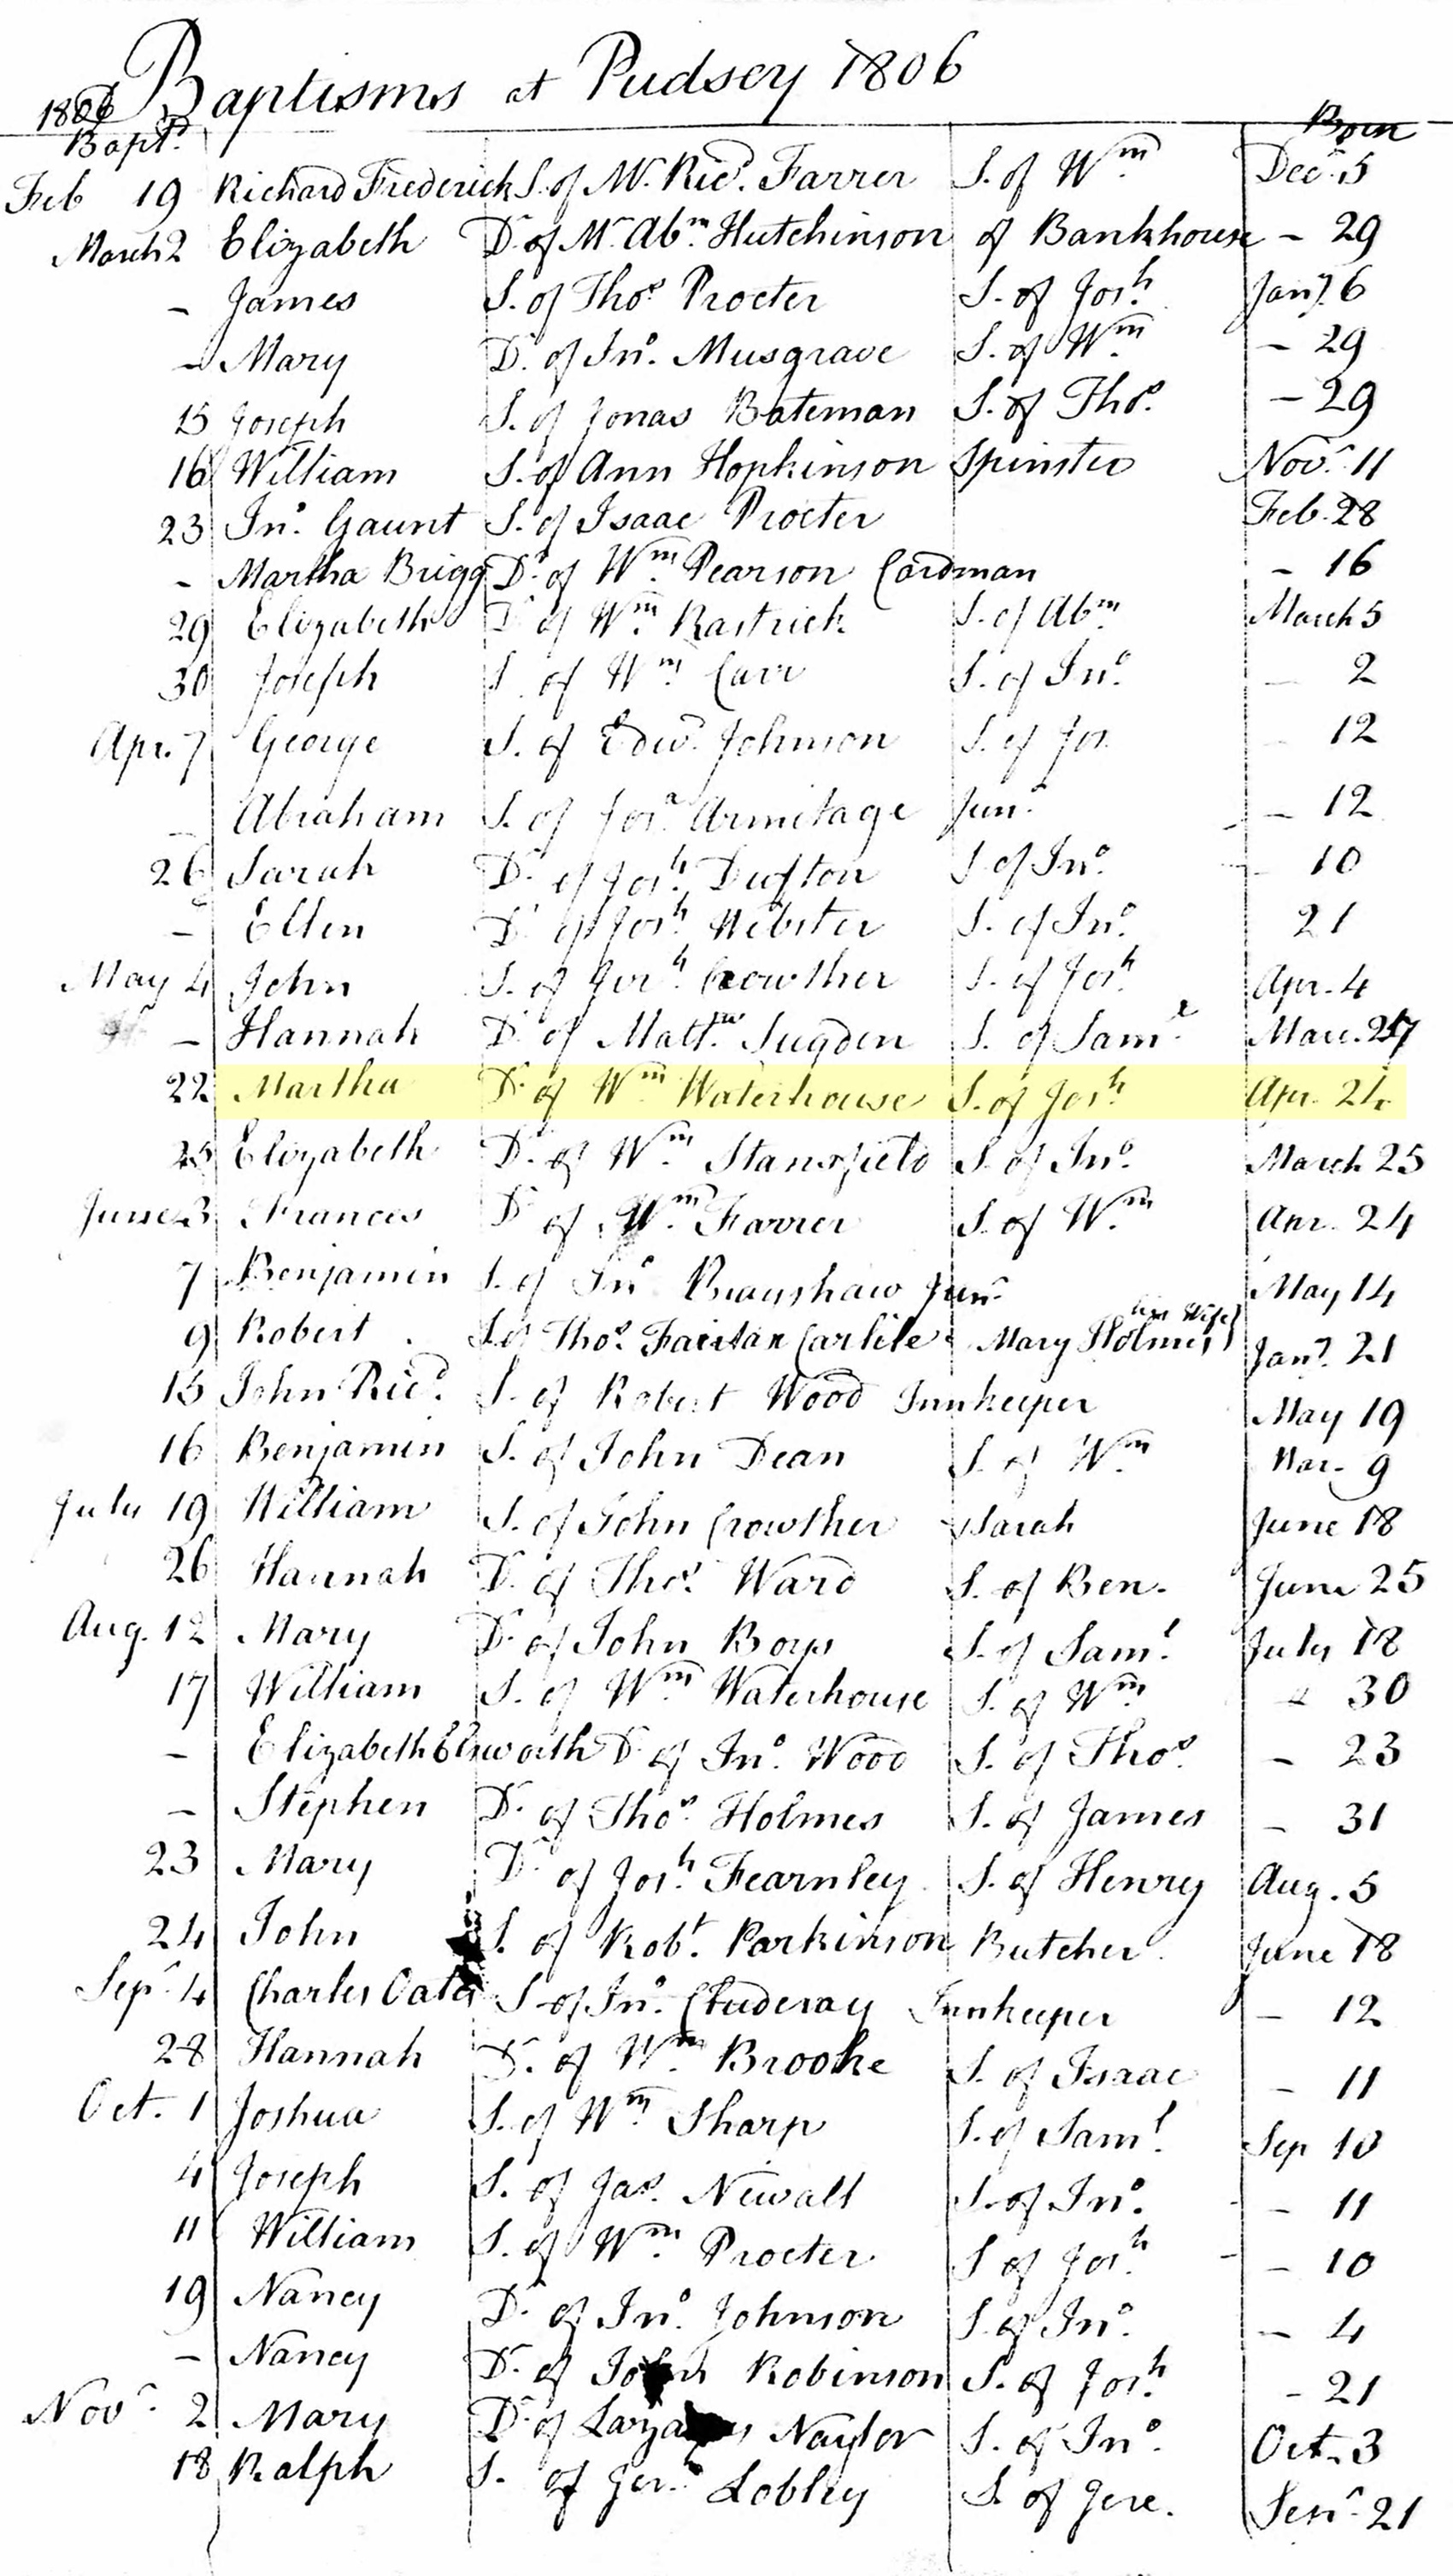 Baptisms at Pudsey 1806
1806 Born
Bapt.
Feb 19 Richard Frederick S. of Mr. Ric.d Farrer S. of Wm Dec. 5
March 2 Elizabeth Dr. of Mr Abm. Hutchinson of Bankhouse - 29
- James S. of Thos Procter S. of Josh. Jany. 6
- Mary Dr. of Jno. Musgrave S. of Wm - 29
15 Joseph S. of Jonas Bateman S. of Thos. - 29
16 William S. of Ann Hopkinson Spinster Novr. 11
23 Jno. Gaunt S. of Isaac Procter Feb. 28
- Martha Brigg Dr. of Wm. Pearson Cardman - 16
29 Elizabeth D of Wm. Rastrick S. of Abm March 5
30 Joseph S. of Wm. Carr S. of Jno. - 2
Apr. 7 George S. of Edwd. Johnson S. of Jos. - 12
- Abraham S. of Josa. Armitage Junr. - 12
26 Sarah Dr. of Josh. Dufton S. of Jno. - 10
- Ellen Dr of Josh. Webster S. of Jno. 21
May 4 John S. of Josh. Crowther S. of Josh. Apr. 4
- Hannah Dr. of Mattw. Sugden S. of Saml. Mar. 27
22 Martha Dr. of Wm. Waterhouse S. of Josh. Apr. 24
25 Elizabeth Dr. of Wm. Stansfield S. of Jno. March 25
June 3 Frances Dr of Wm. Farrer S. of Wm. Apr. 24
7 Benjamin S. of Jno Brayshaw Junr. May 14
his Wife
9 Robert S. of Thos. Fairfax Carlile Mary Holmes Jany. 21
15 John Ricd. S. of Robert Wood Innkeeper May 19
16 Benjamin S. of John Dean S. of Wm Mar. 9
July 19 William S. of John Crowther Sarah June 18
26 Hannah Dr. of Thos. Ward S. of Ben. June 25
Aug. 12 Mary Dr. of John Boys S. of Saml. July 18
17 William S. of Wm. Waterhouse S. of Wm. - 30
- Elizabeth Elsworth Dr. of Jno. Wood S. of Thos. - 23
- Stephen Dr. of Thos. Holmes S. of James - 31
23 Mary Dr. of Josh. Fearnley S. of Henry Aug. 5
24 John S. of Robt. Parkinson Butcher June 18
Sepr. 4 Charles Oates S. of Jno. Cluderay Innkeeper - 12
28 Hannah Dr. of Wm. Brooke S. of Isaac - 11
Oct. 1 Joshua S. of Wm. Sharp S. of Saml. Sep 10
4 Joseph S. of Jas. Newall S. of Jno. - 11
11 William S. of Wm. Procter S of Josh. - 10
19 Nancy Dr. of Jno. Johnson S. of Jno. - 4
- Nancy Dr. of John Robinson S. of Josh. - 21
Novr. 2 Mary Dr. of Lazarus Naylor S. of Jno. Oct. 3
18 Ralph S. of Jere. Lobley S. of Jere. Sepr. 21